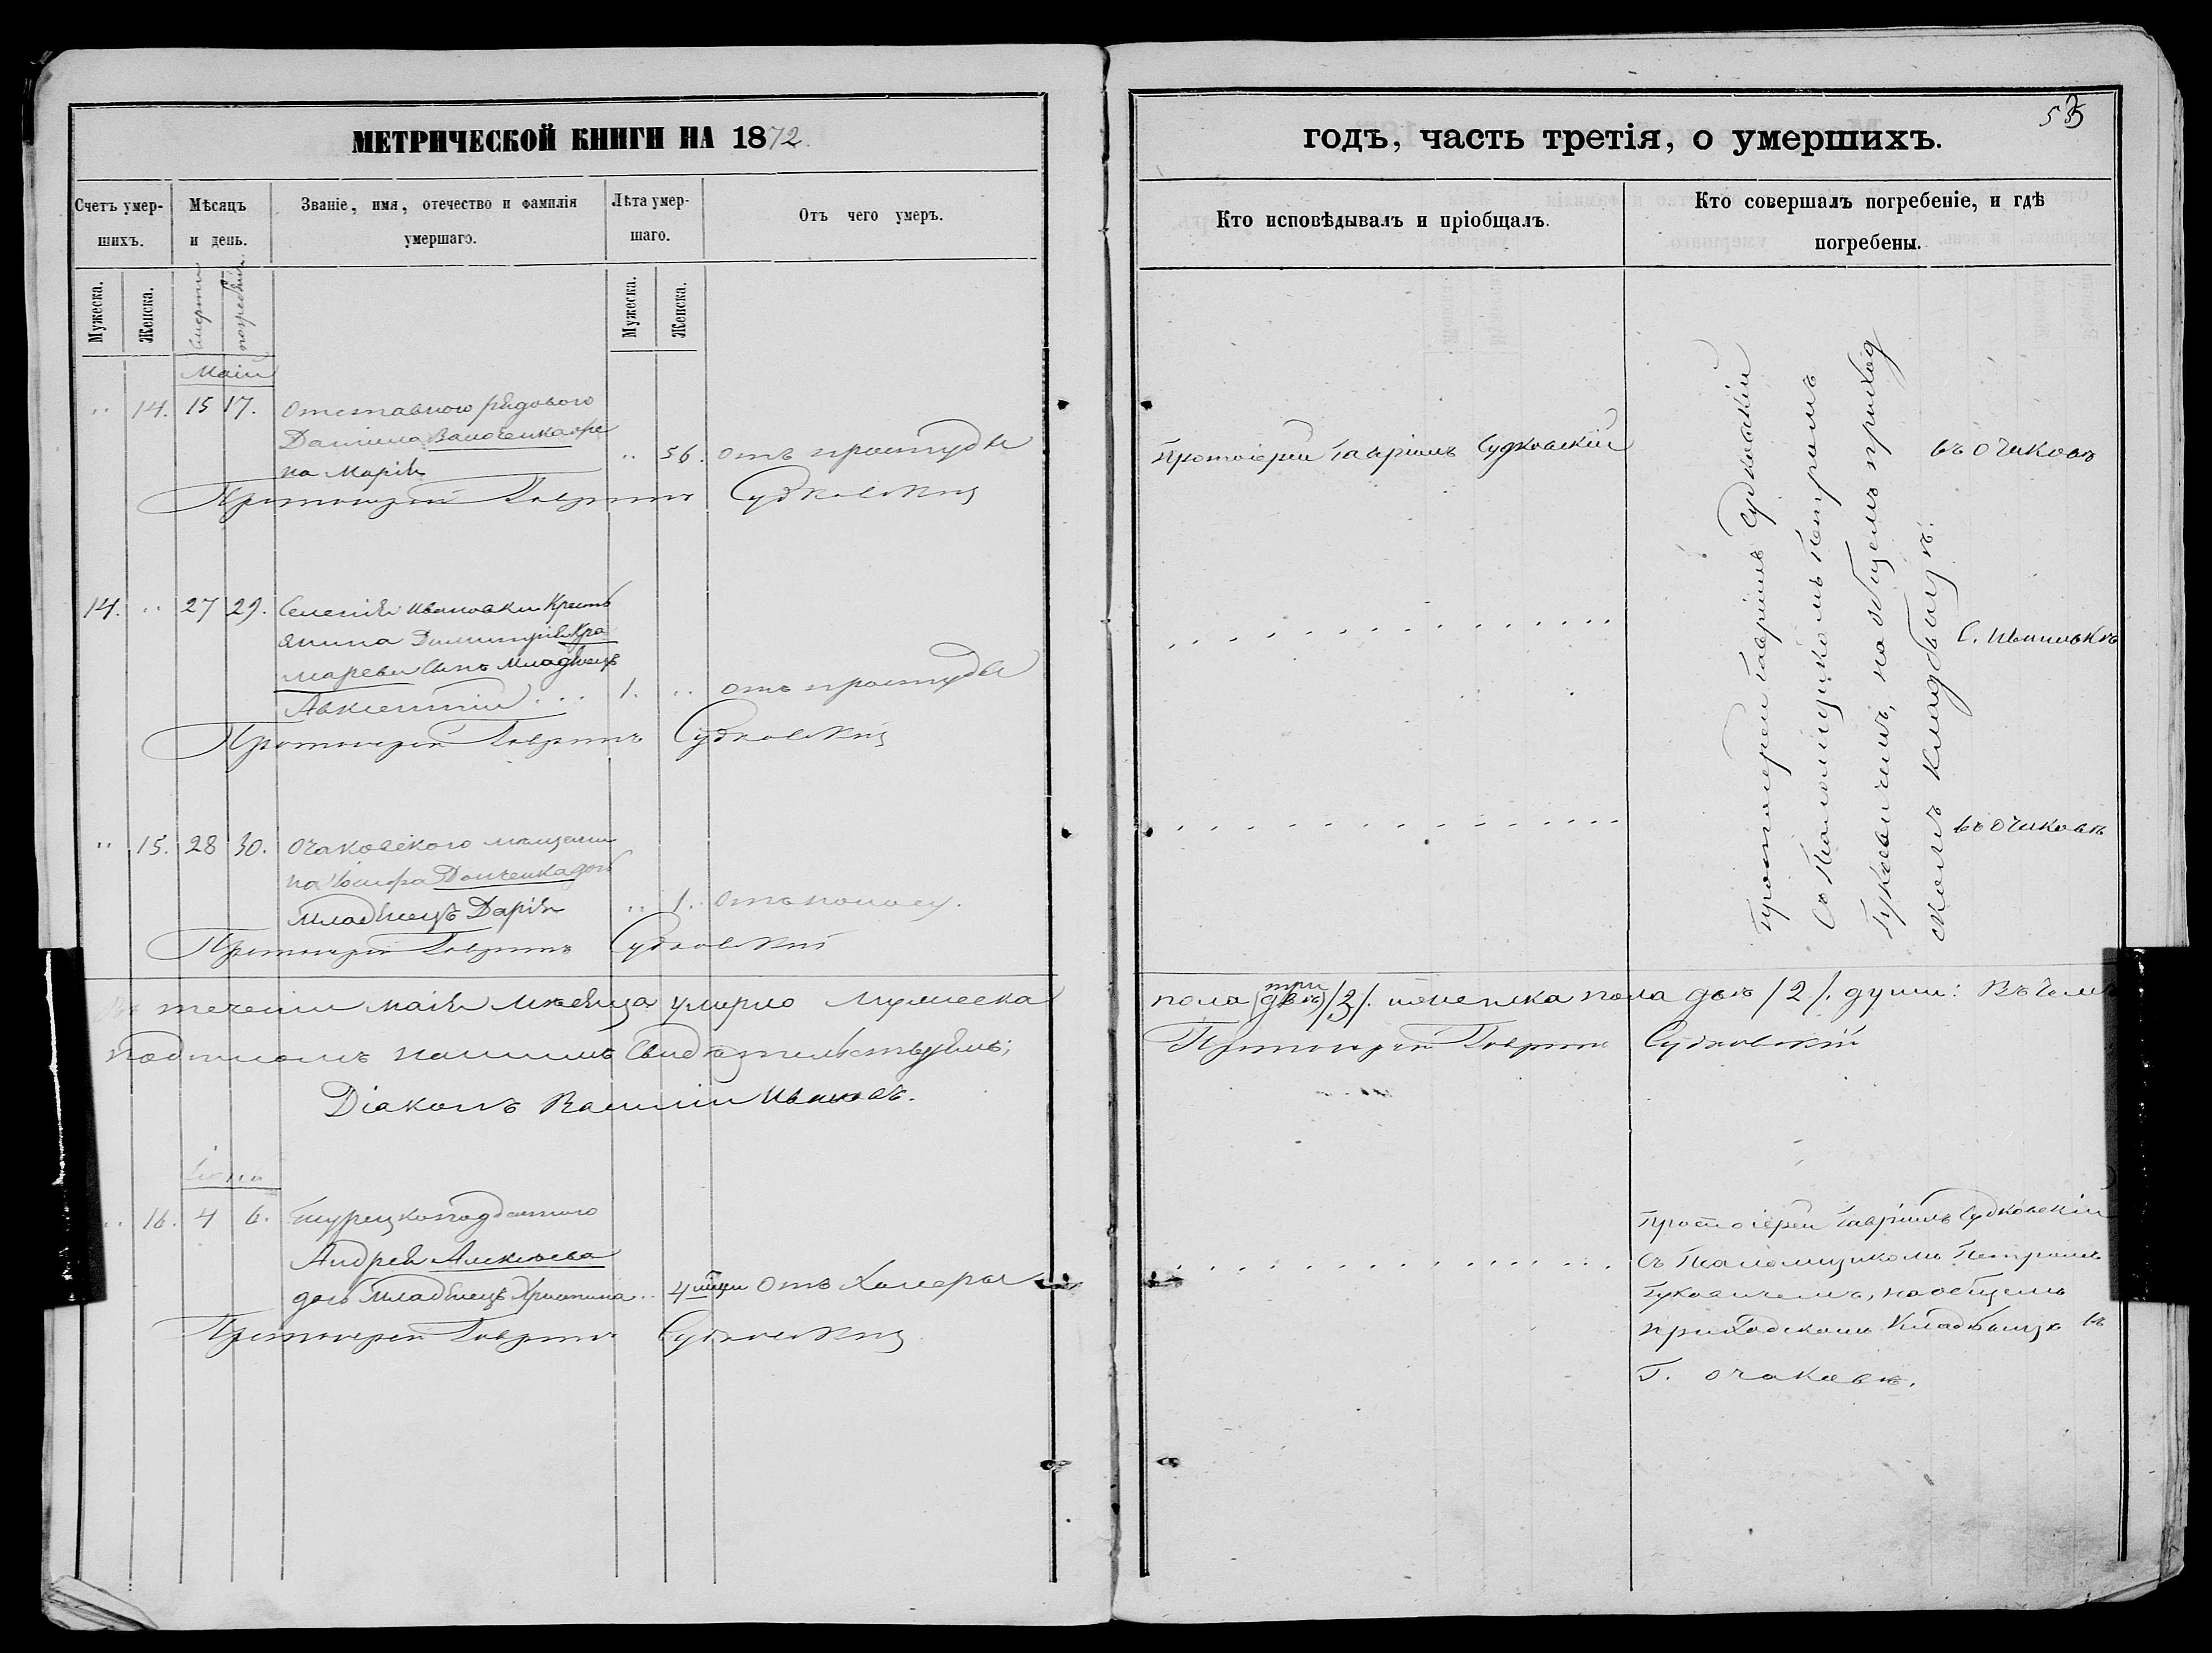 МЕТРИЧЕСКОЙ КНИГИ НА 1872
Счетъ умер-
шихъ.
Мѣсяцъ
и день.
Званіе, имя, отечество и фамилія
умершаго.
Лѣта умер-
шаго.
Отъ чего умеръ.
Мужеска.
Женска.
смерти
погребенія.
Мужеска.
Женска.
Маій
" 14. 15 17. Отставного рядового
Даніила
на Марія " 56. отъ простуды
Протоіерей Гавріилъ Судковскій
14. " 27 29. Селенія Ивановки Кресть
янина Димитрія Кра
марева Сынъ Младенецъ
Авксентій . . . 1. " отъ простуды
Протоіерей Гавріилъ Судковскій
" 15. 28 30. Очаковского мѣщани
на Іосифа Донченка дочь
Младенецъ Дарія " 1. Отъ поносу.
Протоіерей Гавріилъ Судковскій
Въ теченіи маія мѣсяца умерло мужеска
подписомъ нашимъ свидѣтельствуемъ;
Діаконъ Василій Ивановъ.
Іюнь
" 16. 4 6. Турецкоподданного
Андрея Алексѣева
дочь Младенецъ Христина " 4 отъ Холеры
Протоіерей Гавріилъ Судковскій
годъ, часть третія, о умершихъ.
Кто исповѣдывалъ и пріобщалъ.
Кто совершалъ погребеніе, и гдѣ
погребены.
Протоіерей Гавріилъ Судковскій
Протоіерей Гавріилъ Судковскій
Съ Псаломщикомъ Петромъ
Гукевичимъ, на общемъ приход
скомъ кладбищѣ.
въ Очаковѣ
С. Ивановкѣ
въ Очаковѣ
три
пола (двѣ) /3/. и женска пола двѣ /2/. души: Въ чемъ
Протоіерей Гавріилъ Судковскій
Протоіерей Гавріилъ Судковскій
Съ Псаломщикомъ Петромъ
Гуковичемъ, на общемъ
приходскомъ Кладбищѣ въ
Г. Очаковѣ.